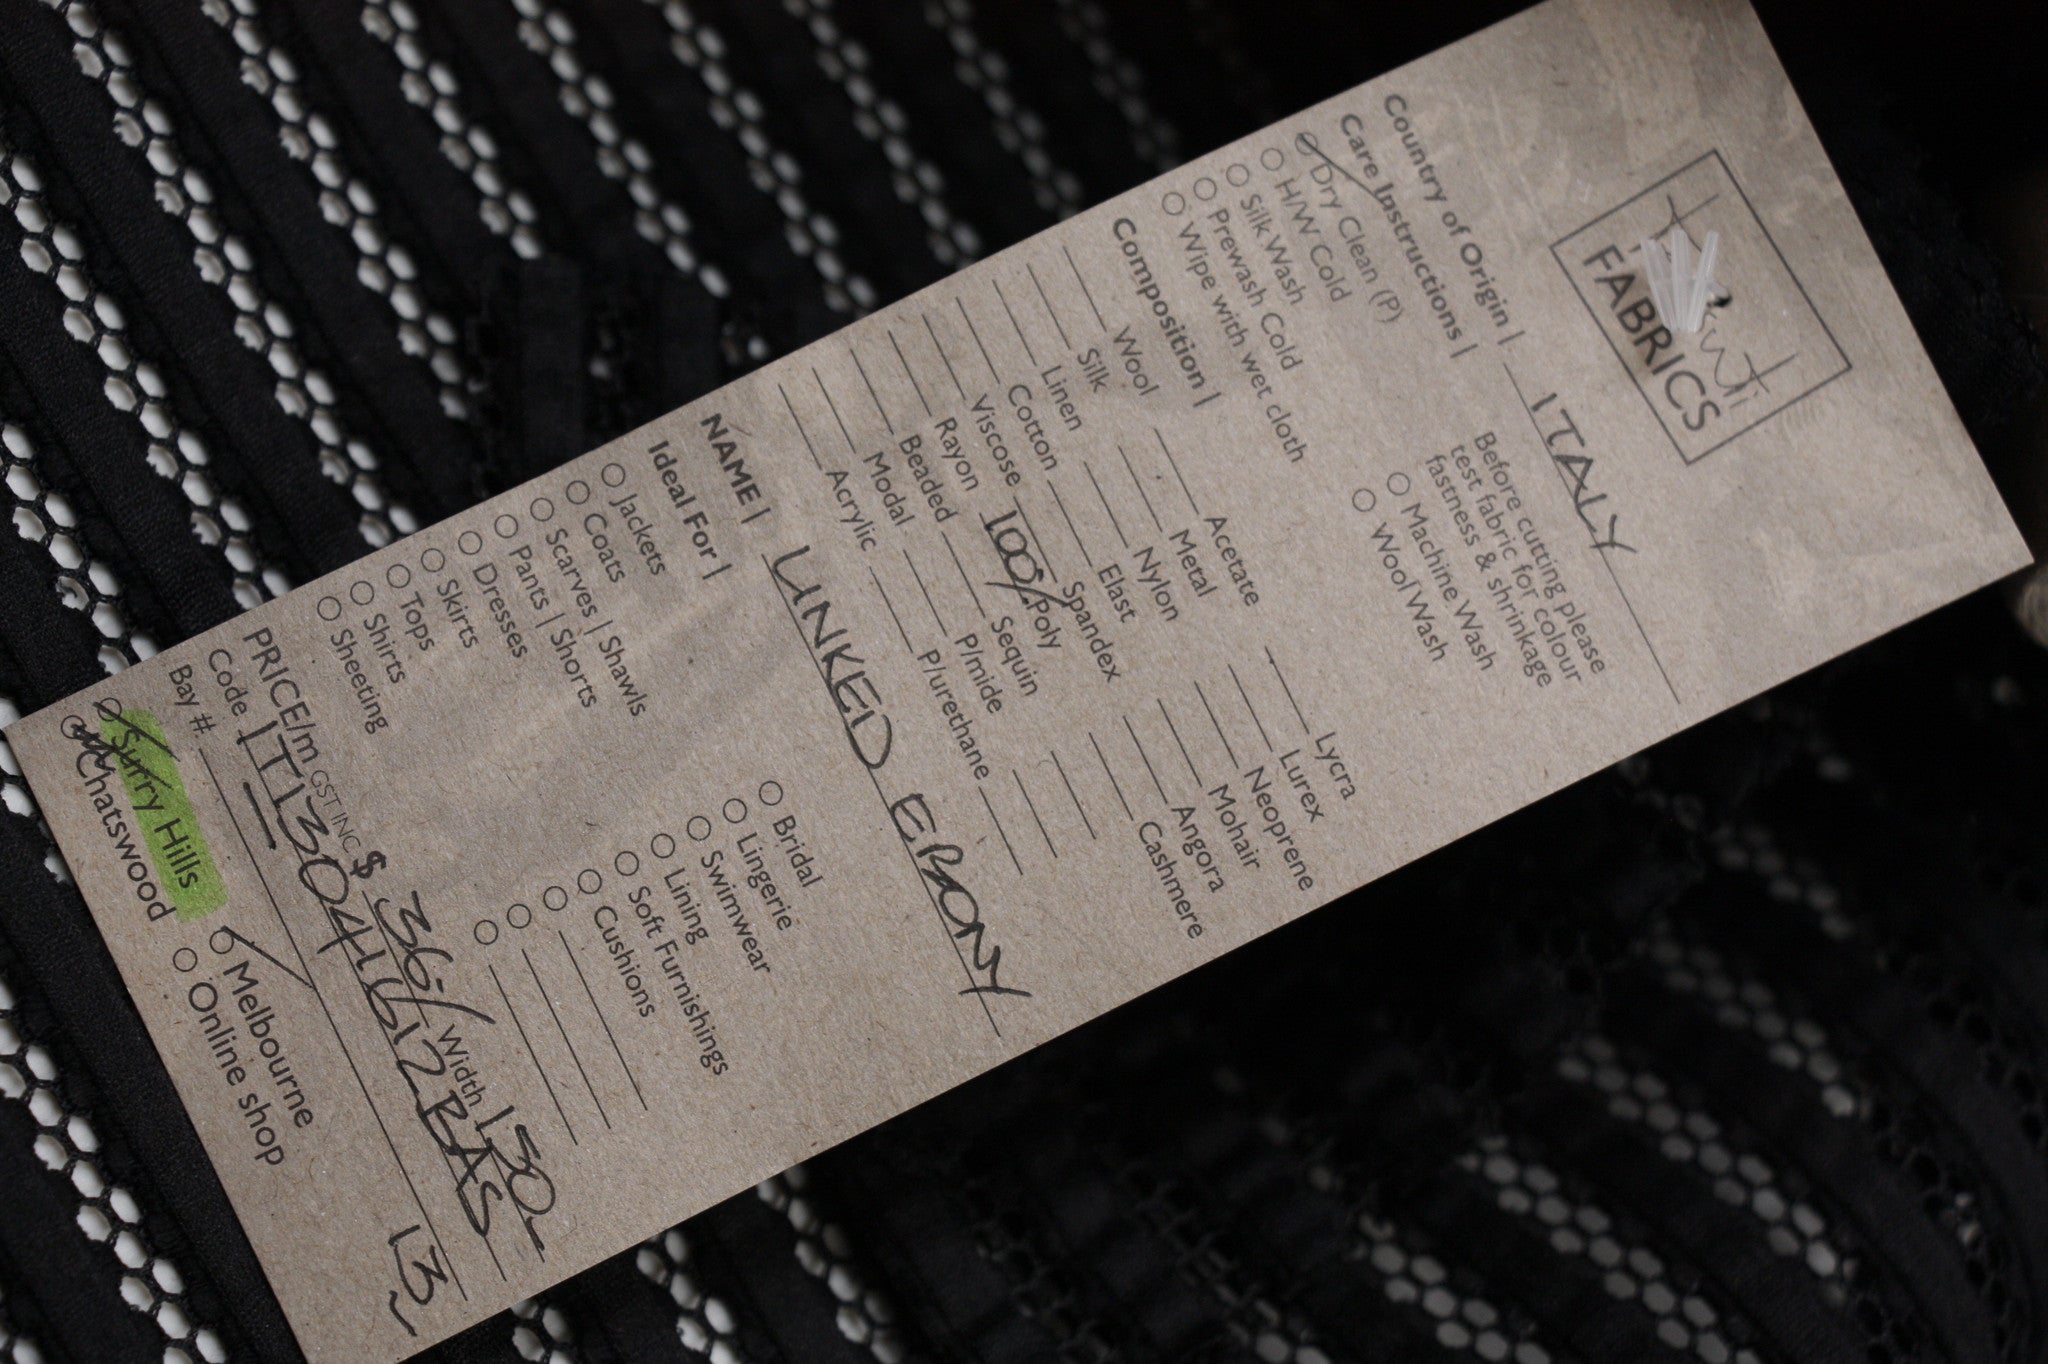 FABRICS
Country of Origin | ITALY
Care Instructions |
Dry Clean (P)
H/W Cold
Silk Wash
Prewash Cold
Wipe with wet cloth
Before cutting please
test fabric for colour
fastness & shrinkage
Machine Wash
Wool Wash
Composition |
Wool Acetate Lycra
Silk Metal Lurex
Linen Nylon Neoprene
Cotton Elast Mohair
Viscose Spandex Angora
Rayon 100% Poly Cashmere
Beaded Sequin
Modal P/mide
Acrylic P/urethane
NAME | LINKED EBONY
Ideal For |
Jackets Bridal
Coats Lingerie
Scarves | Shawls Swimwear
Pants | Shorts Lining
Dresses Soft Furnishings
Skirts Cushions
Tops
Shirts
Sheeting
PRICE/m GST INC $ 36.- Width 130
Code IT13041612BAS
Bay # 13
Surry Hills Melbourne
Chatswood Online shop